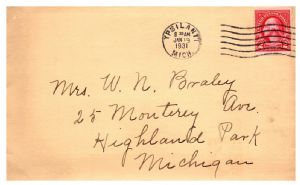 YPSILANTI
8 30 AM
JAN 15
1931
MICH.
Mrs. W. N. Braley
25 Monterey Ave.
Highland Park
Michigan